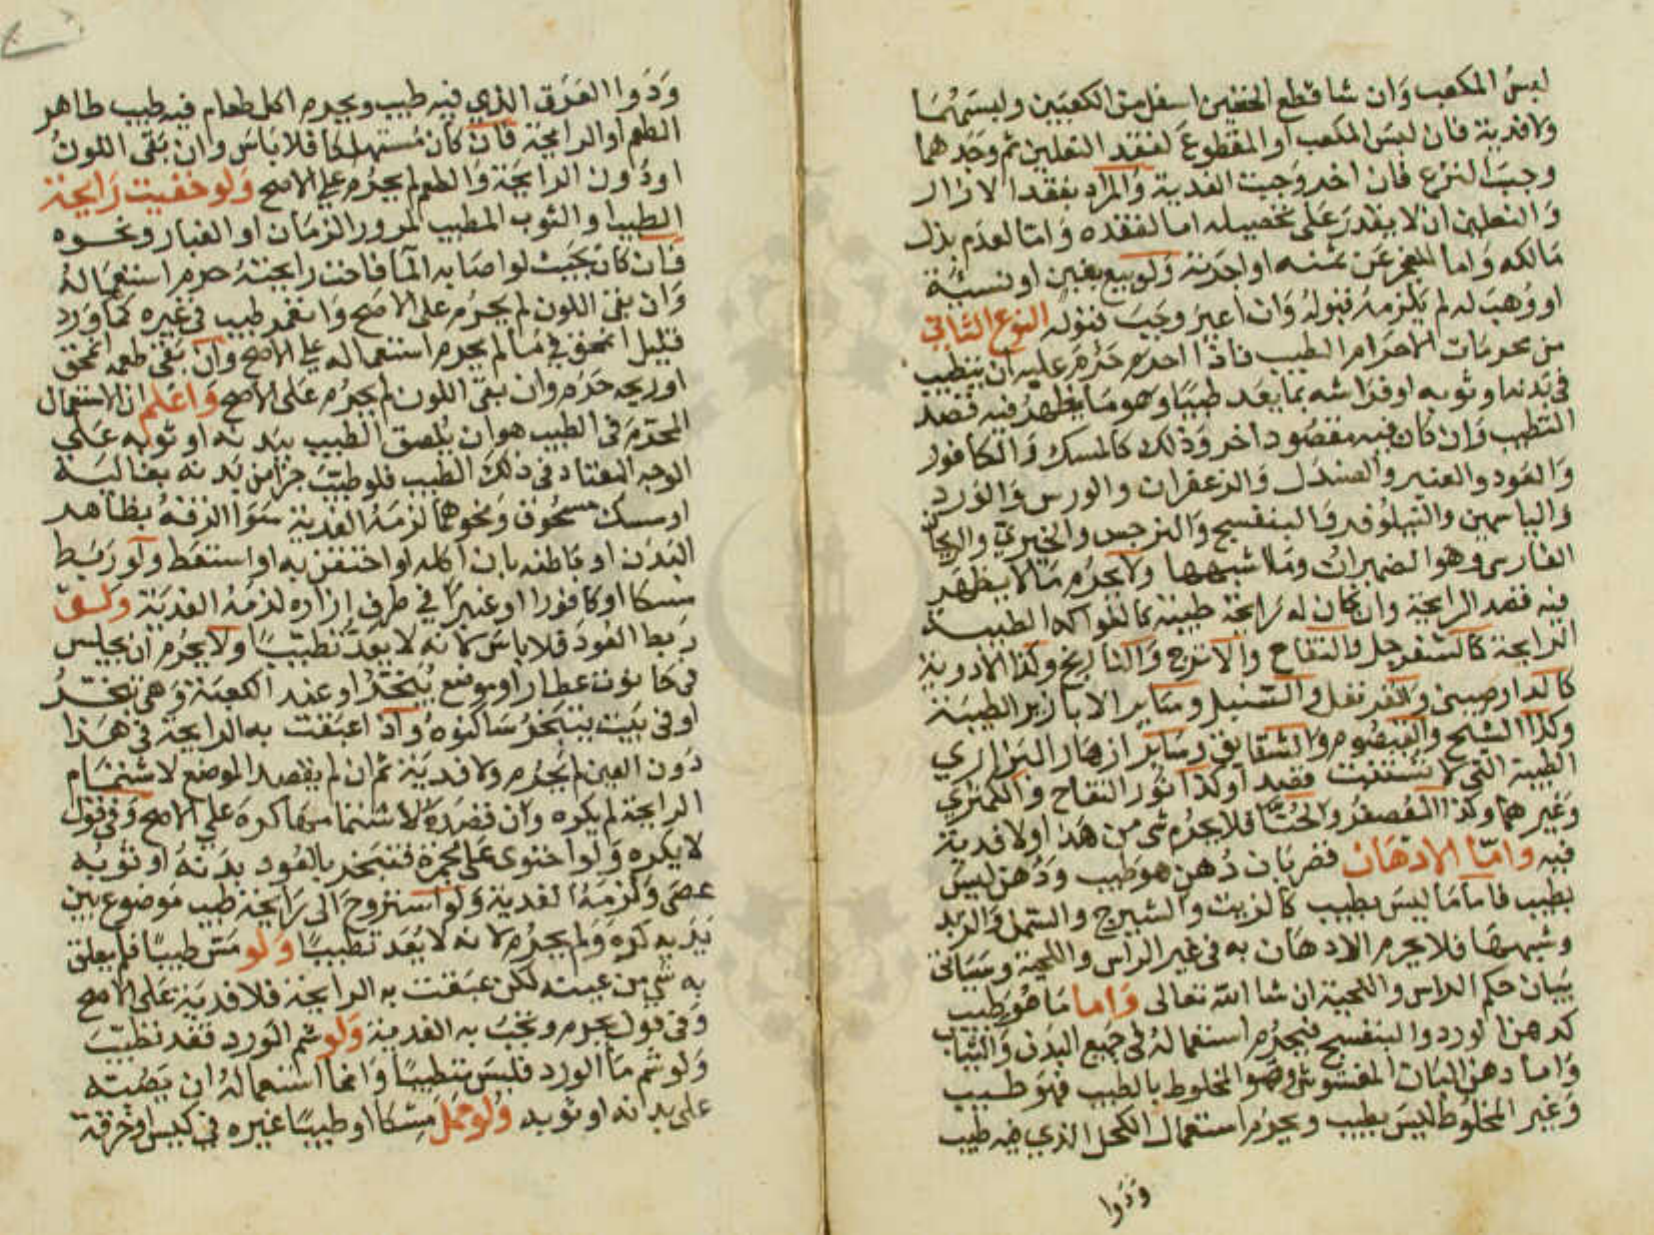 لبس المكعب وان شا قطع الخفين اسفل من الكعبين ولبسهما
ولا فدية فان لبس المكعب او المقطوع لفقد النعلين ثم وجدهما
وجب النزع فان اخر وجبت الفدية والمراد بفقد الازار
والنعلين ان لا يقدر على تحصيله اما لفقده واما لعدم بذل
مالكه واما لعجزه عن ثمنه او اجرته ولو بيع بغبن او نسيئة
او وهب له لم يلزمه قبوله وان اعير وجب قبوله النوع الثاني
من محرمات الاحرام الطيب فاذا احرم حرم عليه ان يتطيب
في بدنه او ثوبه او فراشه بما يعد طيبا وهو ما يظهر فيه قصد
التطيب وان كان فيه مقصود اخر وذلك كالمسك والكافور
والعود والعنبر والصندل والزعفران والورس والورد
والياسمين والنيلوفر والبنفسج والنرجس والخيري والريحان
الفارسي وهو الضميران وما اشبهها ولا يحرم ما لا يظهر
فيه قصد الرايحة وان كان له رايحة طيبة كالفواكه الطيبة
الرايحة كالسفرجل والتفاح والاترج والنارنج وكذا الادوية
كالدارصيني والقرنفل والسنبل وساير الابازير الطيبة
وكذا الشيح والقيصوم والشقايق وساير ازهار البراري
الطيبة التي لا تستنبت قصدا وكذا نور التفاح والكمثري
وغيرهما وكذا العصفر والحنا فلا يحرم شي من هذا ولا فدية
فيه واما الادهان فضربان دهن هو طيب ودهن ليس
بطيب فاما ما ليس بطيب كالزيت والشيرج والسمن والزبد
وشبهها فلا يحرم الادهان به في غير الراس واللحية وسياتي
بيان حكم الراس واللحية ان شا الله تعالى واما ما هو طيب
كدهن الورد والبنفسج فيحرم استعماله في جميع البدن والثياب
واما دهن البان المغشوش وهو المخلوط بالطيب فهو طيب
وغير المخلوط ليس بطيب ويحرم استعمال الكحل الذي فيه طيب
ودوا
ودوا العرق الذي فيه طيب ويحرم اكل طعام فيه طيب ظاهر
الطعم او الرايحة فان كان مستهلكا فلا باس وان بقي اللون
او دون الرايحة والطعم لم يحرم على الاصح ولو خفيت رايحة
الطيب او الثوب المطيب لمرور الزمان او الغبار ونحوه
فان كان بحيث لو اصابه الما فاحت رايحته حرم استعماله
وان بقي اللون لم يحرم على الاصح وانغمر طيب في غيره كما ورد
قليل انمحق في ما لم يحرم استعماله على الاصح وان بقي طعمه انمحق
او ريحه حرم وان بقي اللون لم يحرم على الاصح واعلم ان الاستعمال
المحرم في الطيب هو ان يلصق الطيب ببدنه او ثوبه على
الوجه المعتاد في ذلك الطيب فلو طيب جزا من بدنه بغالية
او مسك مسحوق ونحوهما لزمه الفدية سوا الزقه بظاهر
البدن او باطنه بان اكله او احتقن به او استعط ولو ربط
مسكا او كافورا او عنبرا في طرف ازاره لزمه الفدية ولو
ربط العود فلا باس لانه لا يعد تطيبا ولا يحرم ان يجلس
في حانوت عطار او موضع يبخر او عند الكعبة وهي تبخر
او في بيت يتبخر ساكنوه واذا عبقت به الرايحة في هذا
دون العين لم يحرم ولا فدية ثم ان لم يقصد الموضع لاشتمام
الرايحة لم يكره وان قصده لاشتمامها كره على الاصح وفي قول
لا يكره ولو احتوى على مجمرة فتبخر بالعود بدنه او ثوبه
عصى ولزمه الفدية ولو استروح الى رايحة طيب موضوع بين
يديه كره ولم يحرم لانه لا يعد تطيبا ولو مس طيبا فلم يعلق
به شي من عينه لكن عبقت به الرايحة فلا فدية على الاصح
وفي قول يحرم وتجب به الفدية ولو شم الورد فقد تطيب
ولو شم ما الورد فليس تطيبا وانما استعماله ان يصبه
على بدنه او ثوبه ولو حمل مسكا او طيبا غيره في كيس او خرقة